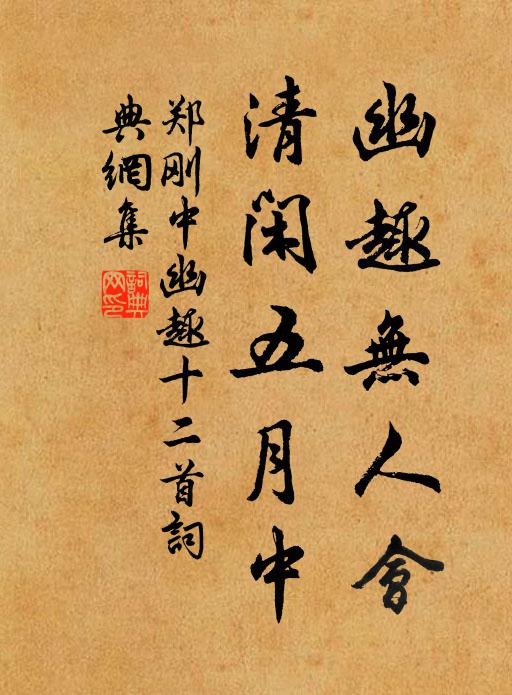 幽趣無人會
清閑五月中
郑刚中幽趣十二首詞
典網集
詞典網印